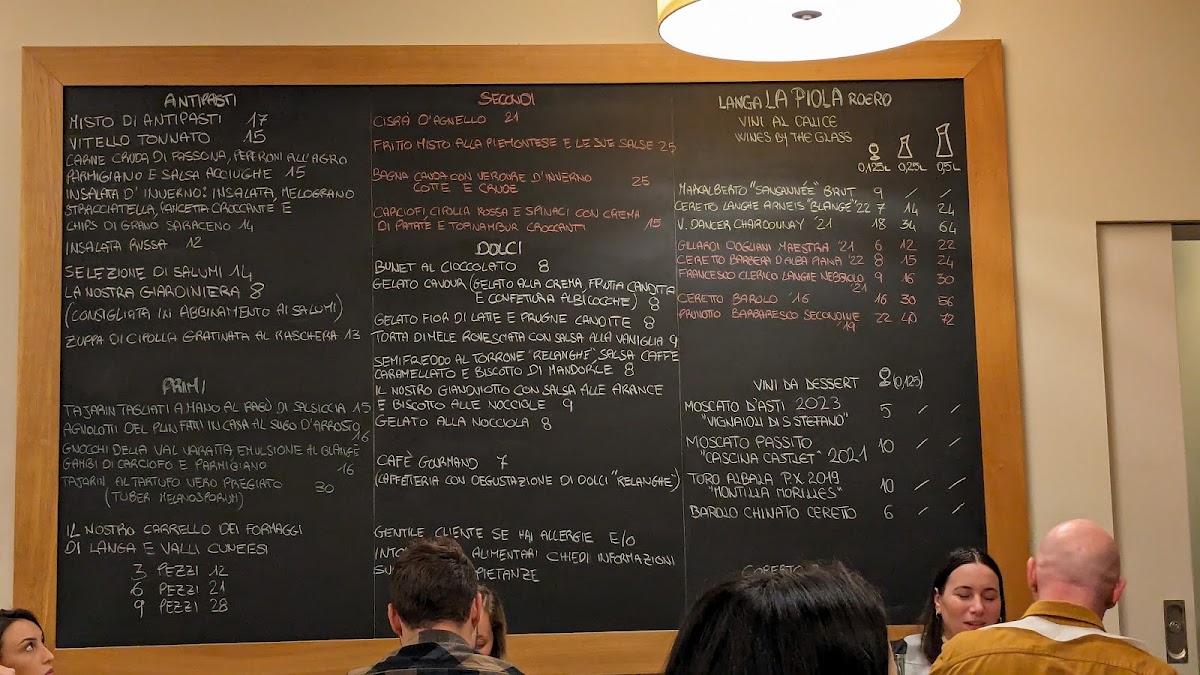 ANTIPASTI
MISTO DI ANTIPASTI 17
VITELLO TONNATO 15
CARNE CRUDA DI FASSONA, PEPERONI ALL'AGRO
PARMIGIANO E SALSA ACCIUGHE 15
INSALATA D'INVERNO: INSALATA, MELOGRANO
STRACCIATELLA, PANCETTA CROCCANTE E
CHIPS DI GRANO SARACENO 14
INSALATA RUSSA 12
SELEZIONE DI SALUMI 14
LA NOSTRA GIARDINIERA 8
(CONSIGLIATA IN ABBINAMENTO AI SALUMI)
ZUPPA DI CIPOLLA GRATINATA AL RASCHERA 13
PRIMI
TAJARIN TAGLIATI A MANO AL RAGÙ DI SALSICCIA 15
AGNOLOTTI DEL PLIN FATTI IN CASA AL SUGO D'ARROSTO
16
GNOCCHI DELLA VAL VARAITA EMULSIONE AL BLANGÈ
GAMBI DI CARCIOFO E PARMIGIANO 16
TAJARIN AL TARTUFO NERO PREGIATO 30
(TUBER MELANOSPORUM)
IL NOSTRO CARRELLO DEI FORMAGGI
DI LANGA E VALLI CUNEESI
3 PEZZI 12
6 PEZZI 21
9 PEZZI 28
SECONDI
CISRÀ D'AGNELLO 21
FRITTO MISTO ALLA PIEMONTESE E LE SUE SALSE 25
BAGNA CAUDA CON VERDURE D'INVERNO 25
COTTE E CRUDE
CARCIOFI, CIPOLLA ROSSA E SPINACI CON CREMA
DI PATATE E TOPINAMBUR CROCCANTI 15
DOLCI
BUNET AL CIOCCOLATO 8
GELATO CAVOUR (GELATO ALLA CREMA, FRUTTA CANDITA
E CONFETURA ALBICOCCHE) 8
GELATO FIOR DI LATTE E PRUGNE CANDITE 8
TORTA DI MELE ROVESCIATA CON SALSA ALLA VANIGLIA 9
SEMIFREDDO AL TORRONE "RELANGHE", SALSA CAFFÈ
CARAMELLATO E BISCOTTO DI MANDORLE 8
IL NOSTRO GIANDUIOTTO CON SALSA ALLE ARANCE
E BISCOTTO ALLE NOCCIOLE 9
GELATO ALLA NOCCIOLA 8
CAFÈ GOURMAND 7
(CAFFETTERIA CON DEGUSTAZIONE DI DOLCI "RELANGHE")
GENTILE CLIENTE SE HAI ALLERGIE E/O
ALIMENTARI CHIEDI INFORMAZIONI
PIETANZE
LANGA LA PIOLA ROERO
VINI AL CALICE
WINES BY THE GLASS
0,125L 0,25L 0,5L
MARCALBERTO "SANSANNÉE" BRUT 9 / /
CERETTO LANGHE ARNEIS "BLANGÈ" '22 7 14 24
V. DANCER CHARDONNAY '21 18 34 64
GILLARDI DOGLIANI MAESTRA '21 6 12 22
CERETTO BARBERA D'ALBA PIANA '22 8 15 24
FRANCESCO CLERICO LANGHE NEBBIOLO 9 16 30
'21
CERETTO BAROLO '16 16 30 56
PRUNOTTO BARBARESCO SECONDINE 22 40 72
'19
VINI DA DESSERT (0,125)
MOSCATO D'ASTI 2023 5 / /
"VIGNAIOLI DI S STEFANO"
MOSCATO PASSITO 10 / /
"CASCINA CASTLET" 2021
TORO ALBALÀ P.X 2019 10 / /
"MONTILLA MORILLES"
BAROLO CHINATO CERETTO 6 / /
COPERTO